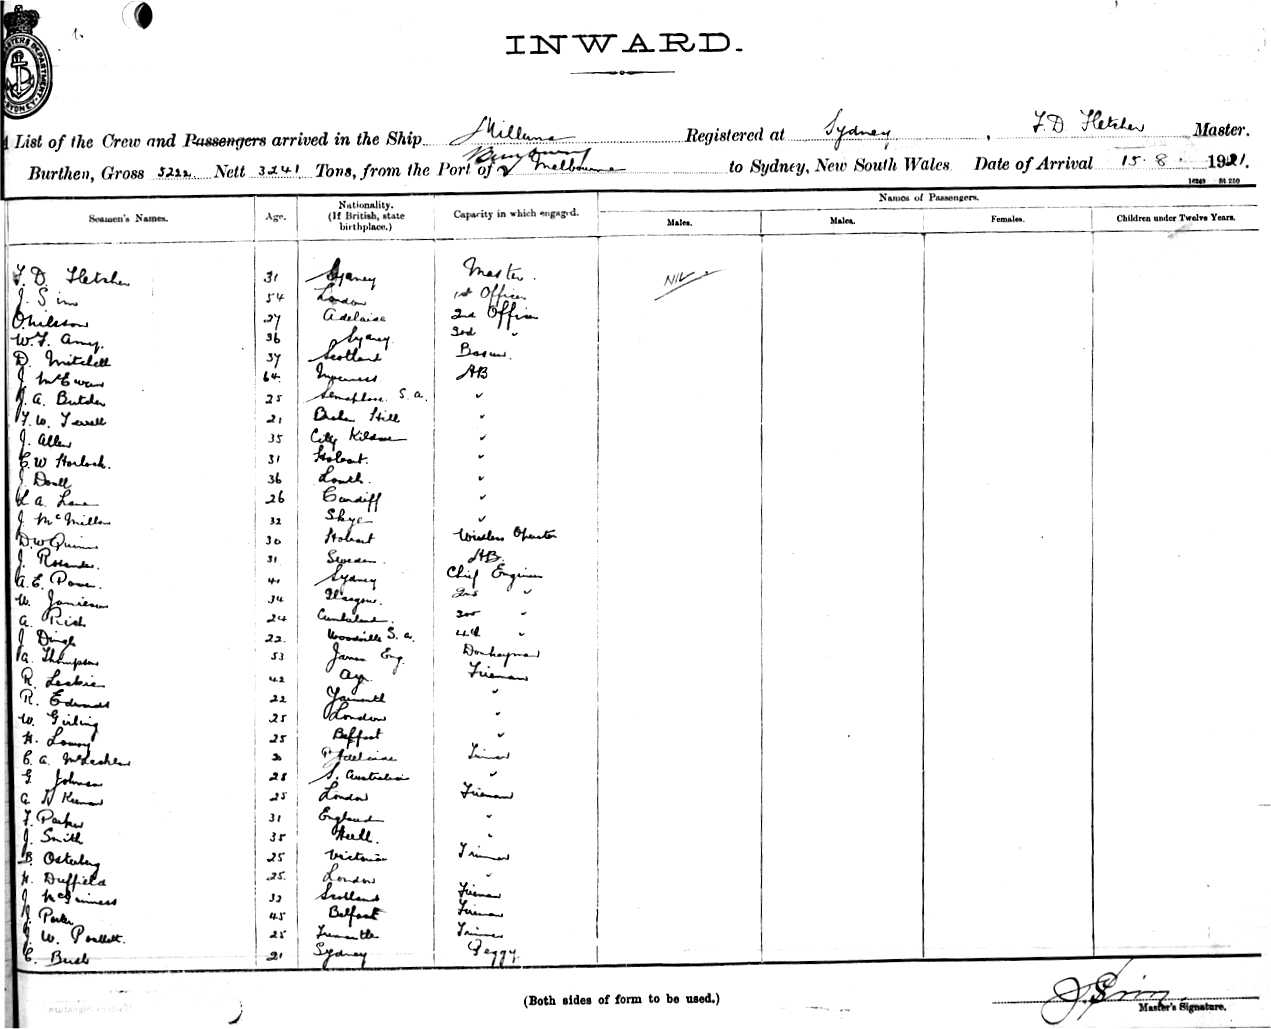 INWARD.
List of the Crew and Passengers arrived in the Ship Milluna Registered at Sydney, F.D Fletcher Master.
Burthen, Gross 5222 Nett 3241 Tons, from the Port of Melbourne to Sydney, New South Wales Date of Arrival 15.8.1921.
Seamen's Names. Age. Nationality. (If British, state birthplace.) Capacity in which engaged. Names of Passengers.
Males. Males. Females. Children under Twelve Years.
F.D. Fletcher 31 Sydney Master. NIL
J. Sim 54 London 1st Officer
O Nilsson 27 Adelaide 2nd Officer
W.F. 36 Sydney 3rd "
D. Mitchell 37 Scotland Bosun.
J McEwan 64 Inverness AB
J. A. Butcher 25 Semaphore S.A. "
F. W. Jewell 21 Broken Hill "
J. Allen 35 City Kildare "
E. W Horlock. 31 Hobart. "
J 36 Louth. "
A. Lane 26 Cardiff "
J McMillan 32 Skye "
D W Quinn 30 Hobart Wireless Operator
J. 31 Sweden AB.
A. E. 41 Sydney Chief Engineer
W. Jamieson 34 Glasgow. 2nd "
A. Rich 24 Cumberland. 3rd "
J 22 Woodville S.A. 4th "
A. Thompson 53 Eng. Donkeyman
R. Leckie 42 Ayr Fireman
R. Edmonds 22 Yarmouth "
W. Girling 25 London "
H. Lowry 25 Belfast "
C. A. McLachlan Pt Adelaide Trimmer
G Johnson 28 S. Australia "
A 25 London Fireman
F. Parker 31 England "
J. Smith 35 Hull. "
B. Osterberg 25 Victoria Trimmer
H. Duffield 25 London "
J McGuinness 32 Scotland Fireman
J. Parker 45 Belfast Fireman
J. W. Poullett. 25 Fremantle Trimmer
C. Bush 21 Sydney Peggy
(Both sides of form to be used.)
J. Sim
Master's Signature.